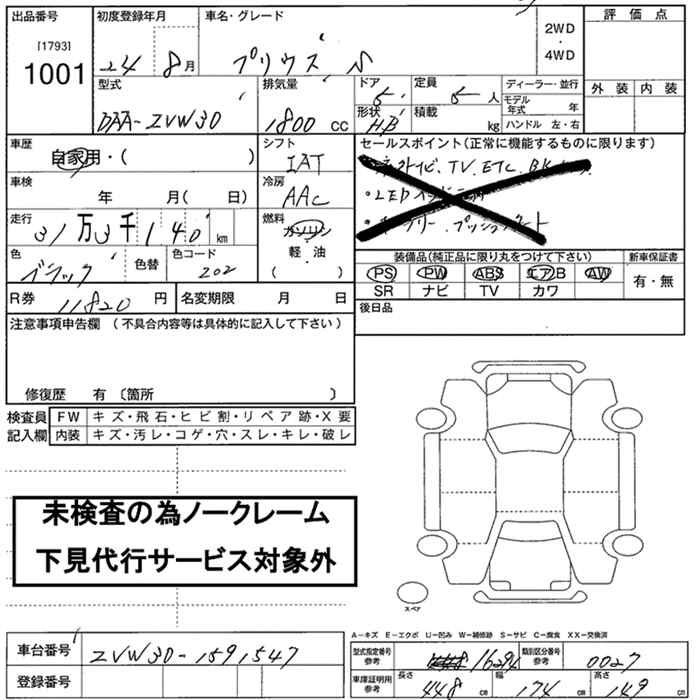 出品番号 初度登録年月 車名・グレード 評価点
[1793]
1001
24 8月 プリウス S
2WD
・
4WD
外装 内装
型式 排気量 ドア 定員 ディーラー・並行
DAA-ZVW30 1800 CC 5 5人
形状 積載 モデル年式 年
HB kg ハンドル 左・右
車歴 シフト セールスポイント(正常に機能するものに限ります)
自家用・( ) IAT
TV. ETC.
車検 冷房
年 月( 日) AAC
・LED
走行 燃料
31万3千140km ガソリン
軽・油
( )
色 色替 色コード
ブラック 202
装備品(純正品に限り丸をつけて下さい) 新車保証書
PS PW ABS エアB AW 有・無
SR ナビ TV カワ
R券 11820 円 名変期限 月 日
後日品
注意事項申告欄 (不具合内容等は具体的に記入して下さい)
修復歴 有 〔箇所 〕
検査員 FW キズ・飛石・ヒビ割・リペア跡・X要
記入欄 内装 キズ・汚レ・コゲ・穴・スレ・キレ・破レ
未検査の為ノークレーム
下見代行サービス対象外
スペア
A-キズ E-エクボ U-凹み W-補修跡 S-サビ C-腐食 XX-交換済
車台番号 ZVW30-1591547
型式指定番号 参考 16294 類別区分番号 参考 0027
登録番号
車庫証明用 参考 長さ 448 cm 幅 174 cm 高さ 149 cm